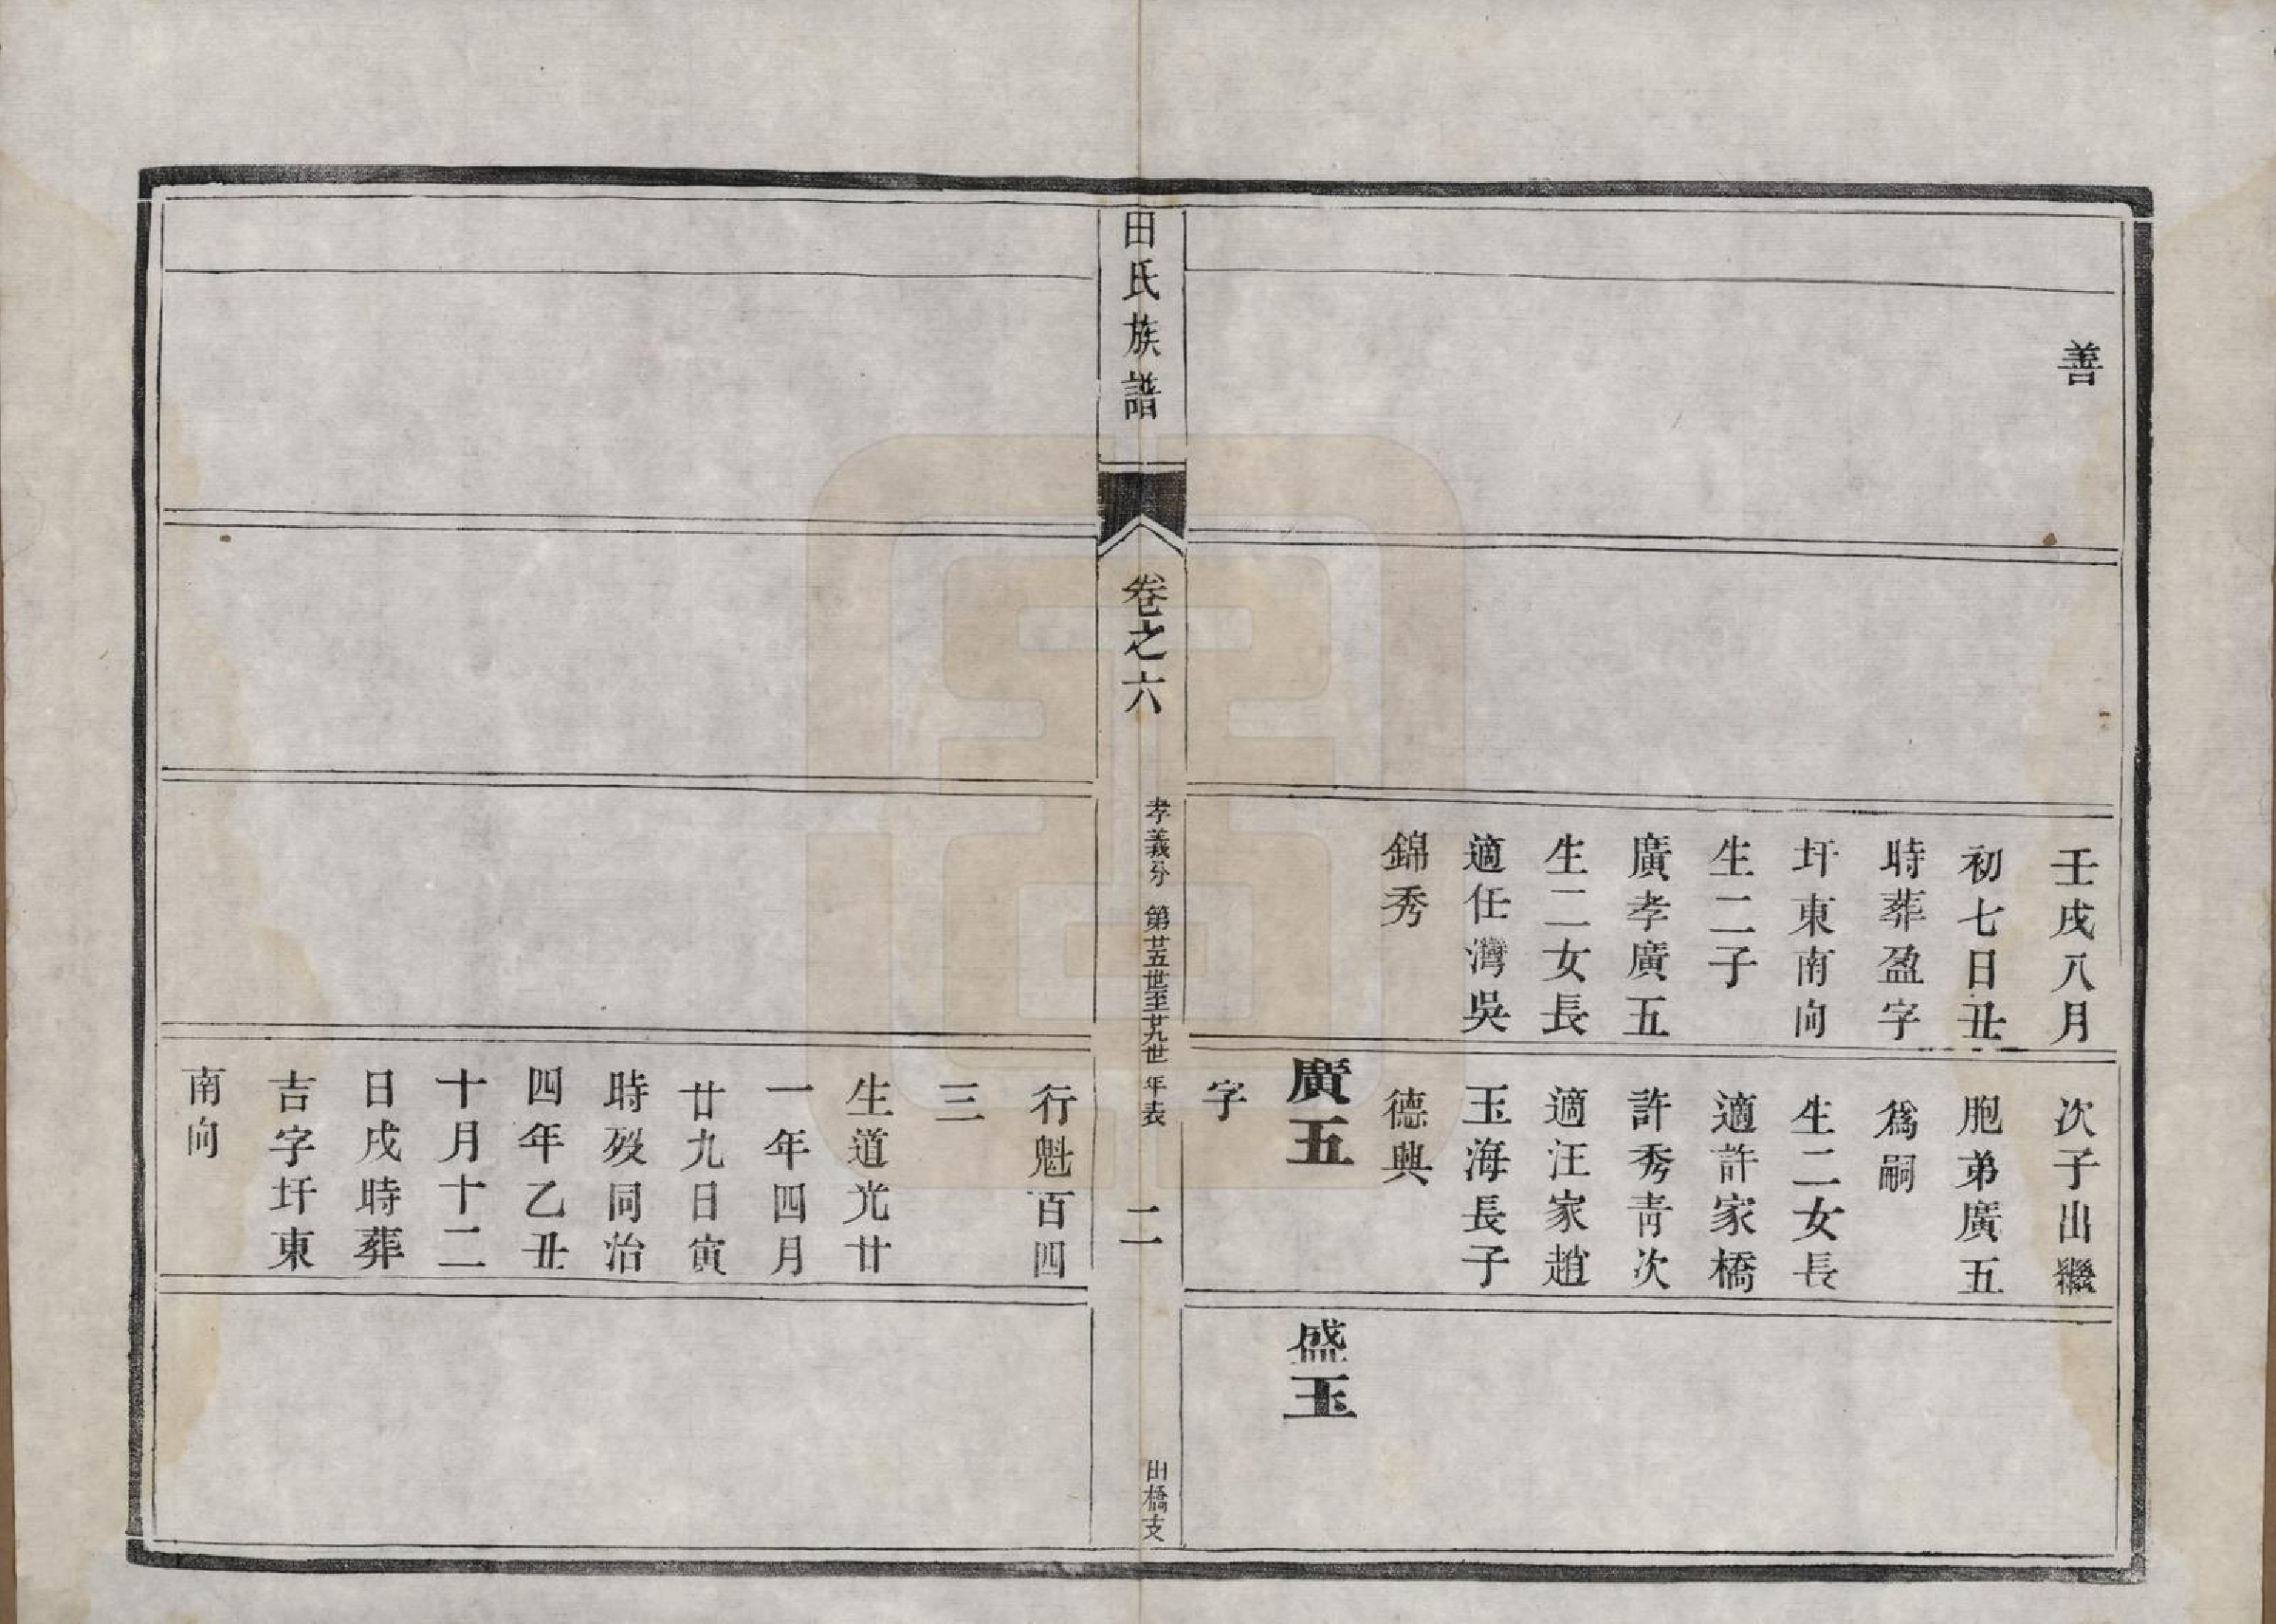 善
壬戌八月
初七日丑
時葬盈字
圩東南向
生二子
廣孝廣五
生二女長
適任灣吳
錦秀
次子出繼
胞弟廣五
爲嗣
生二女長
適許家橋
許秀青次
適汪家趙
玉海長子
德興
廣五
字
盛玉
田氏族譜
卷之六
孝義分 第廿五世至廿九世年表
二
田橋支
行魁百四
三
生道光廿
一年四月
廿九日寅
時歿同治
四年乙丑
十月十二
日戌時葬
吉字圩東
南向